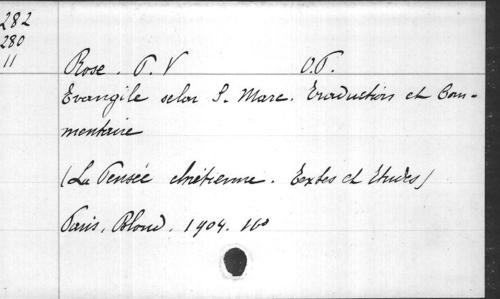 282
280
11
Rose. P. V O.P.
Evangile selon S. Marc. Traduction et Com-
mentaire
(La Pensée chrétienne. Textes et Etudes)
Paris, Bloud. 1904. 16º